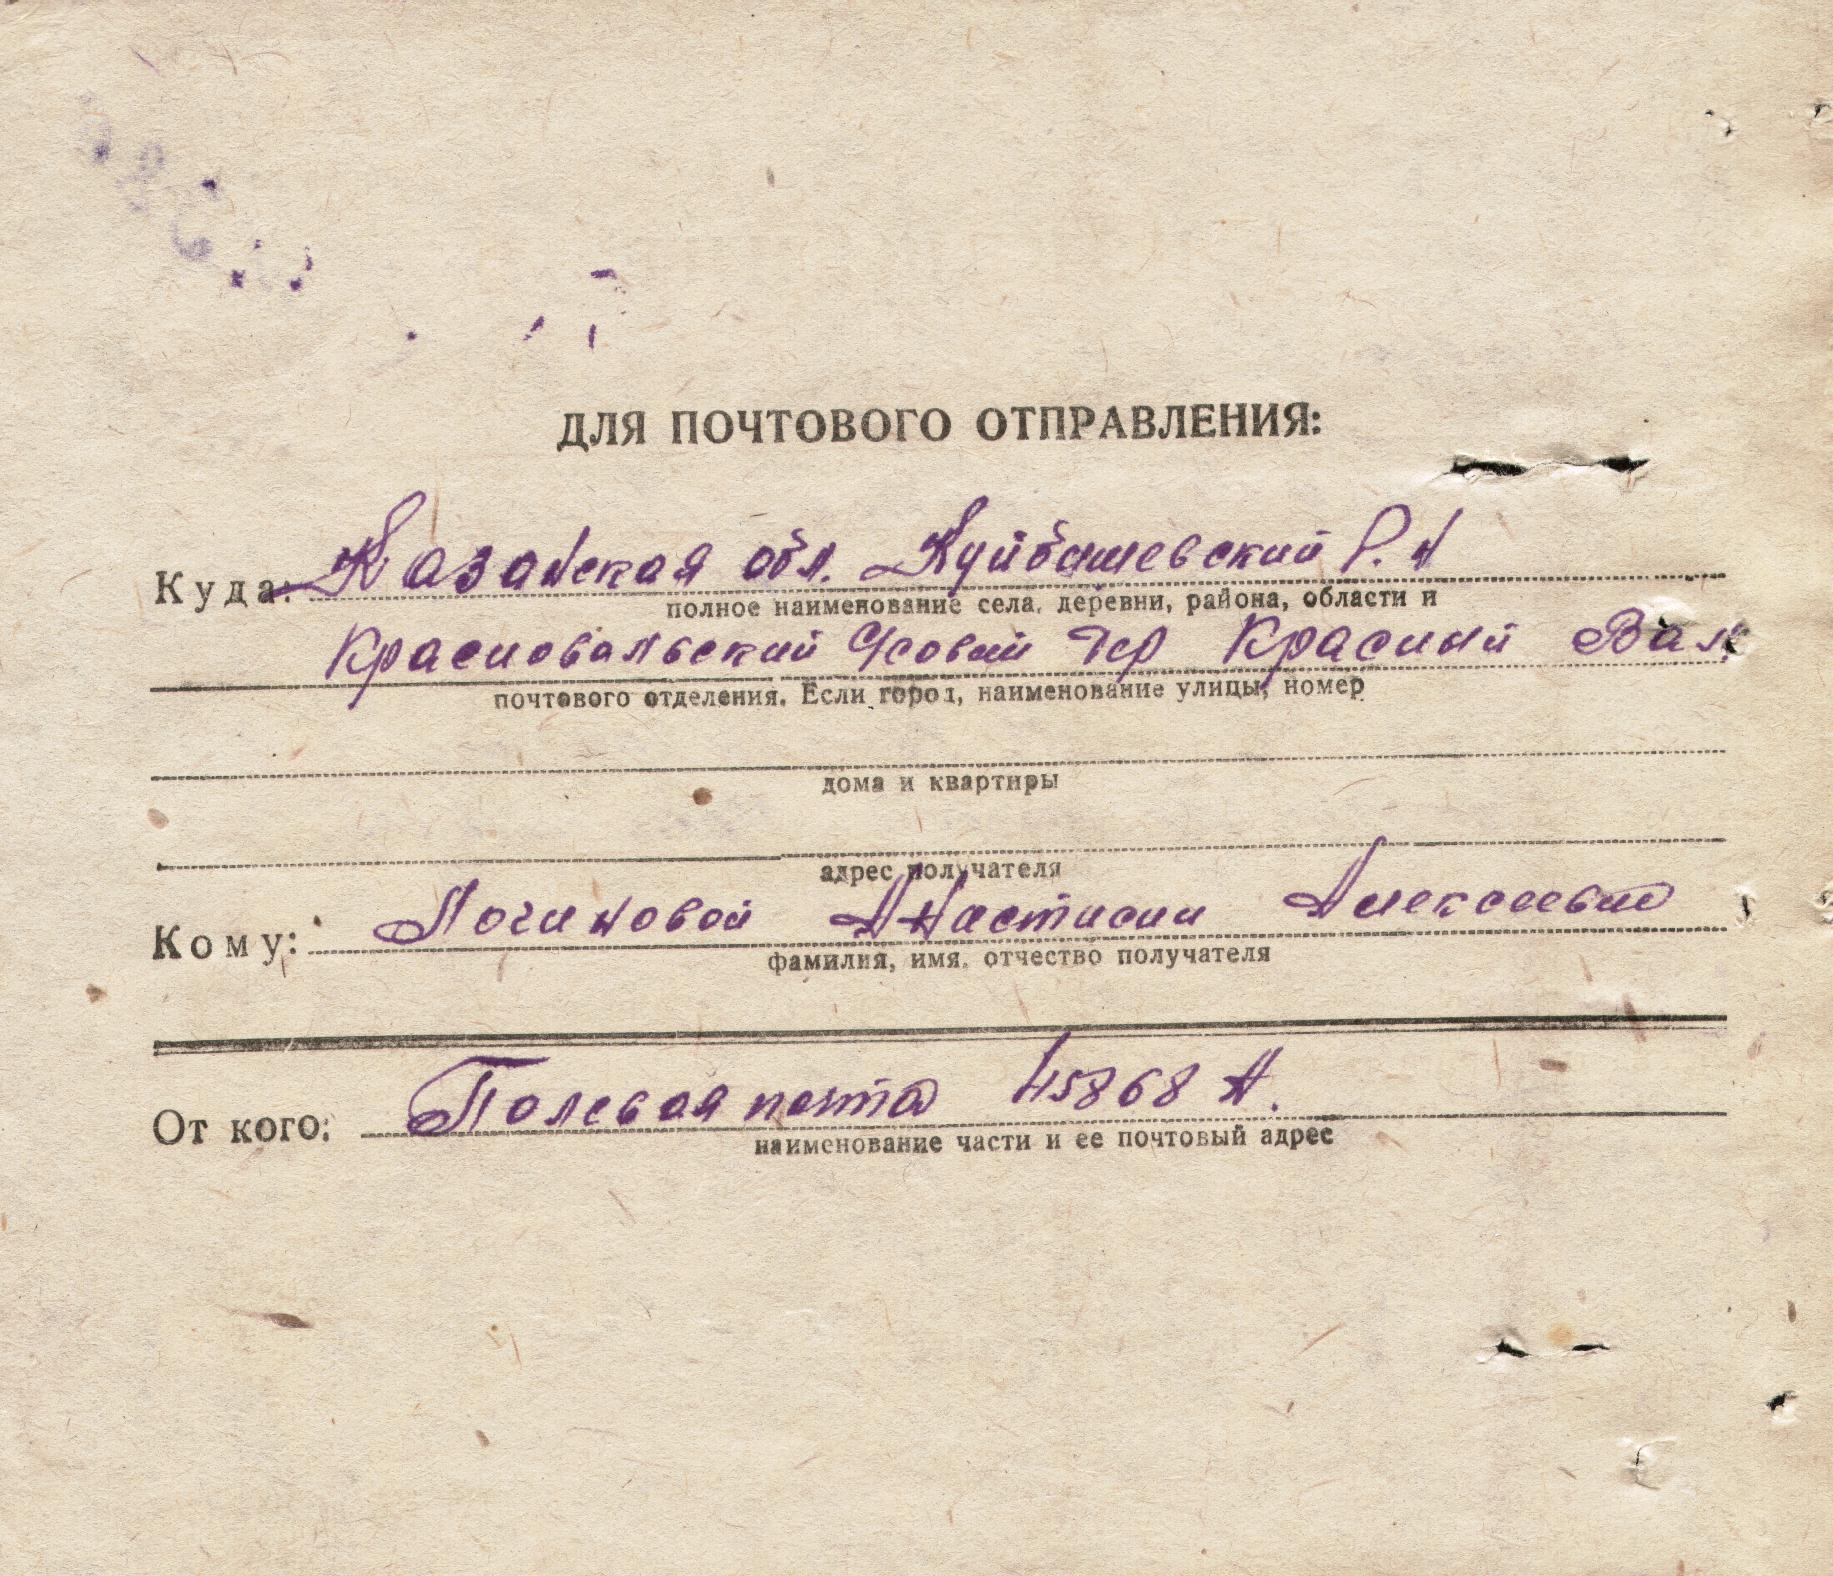 ДЛЯ ПОЧТОВОГО ОТПРАВЛЕНИЯ:
Куда: Казанская обл. Куйбишевский Р.Н
полное наименование села, деревни, района, области и
Красновальский дер Красный Вал
почтового отделения. Если город, наименование улицы, номер
дома и квартиры
адрес получателя
Кому: Логиновой Анастисии Алексеевне
фамилия, имя, отчество получателя
От кого: Полевая почта 45868 А.
наименование части и ее почтовый адрес